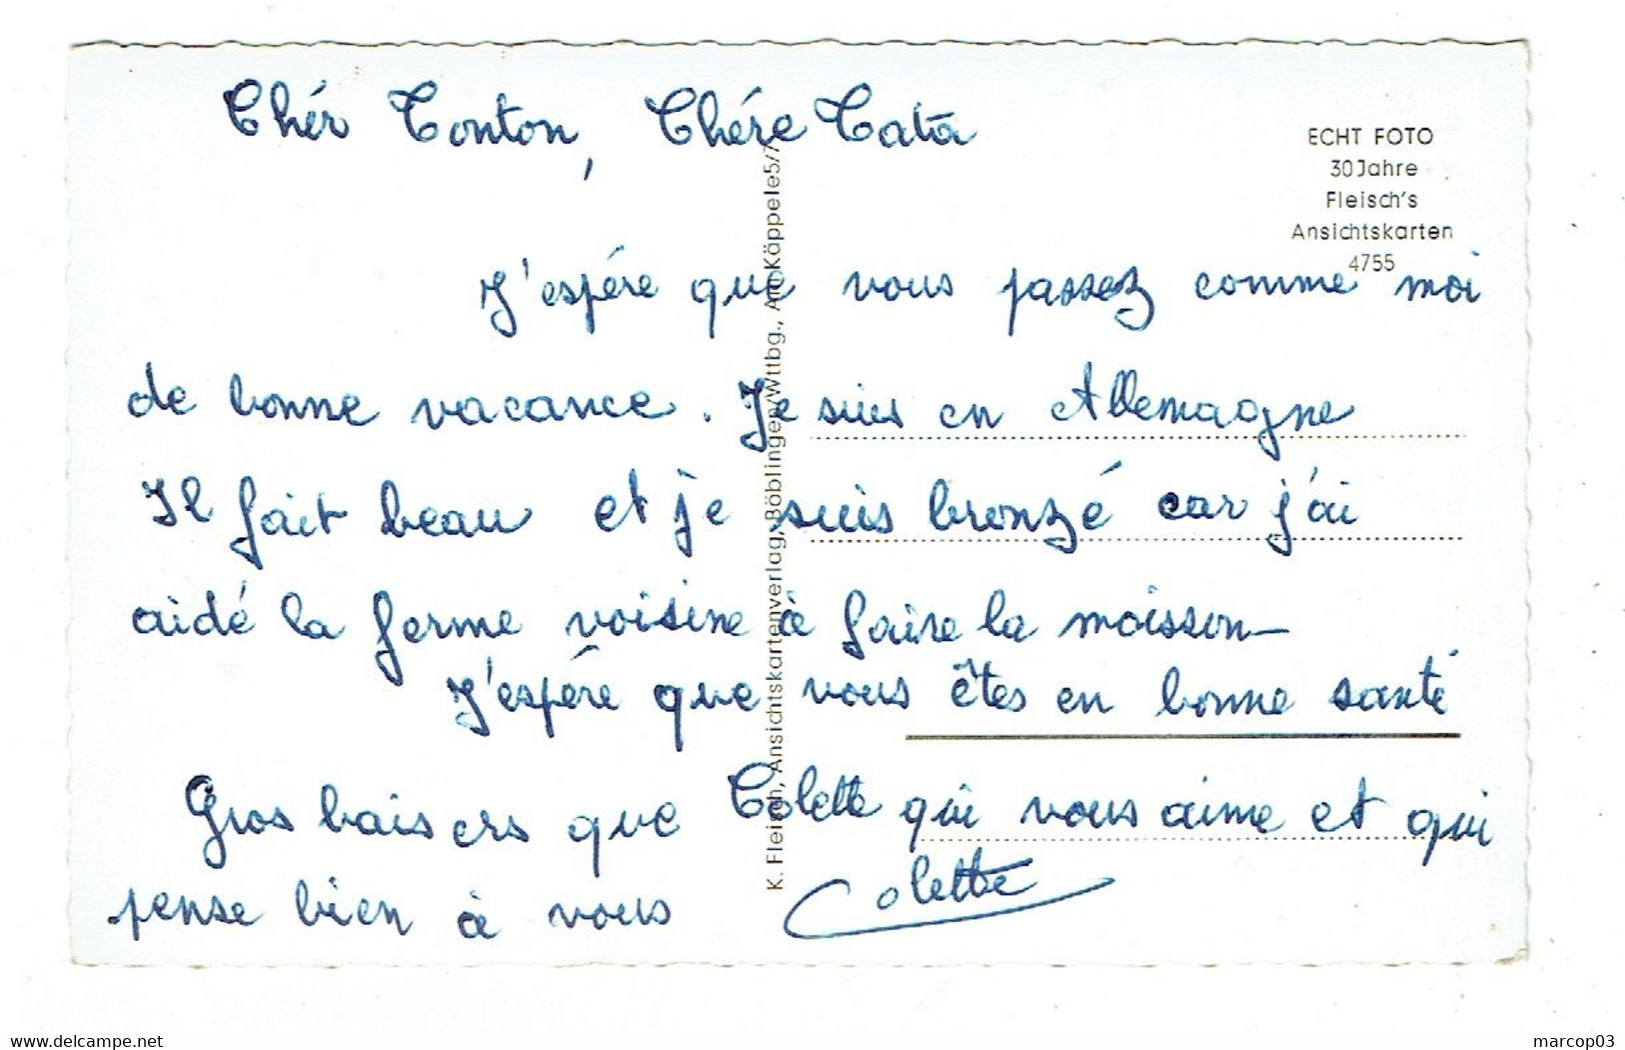 Chér Tonton, Chére Tata
ECHT FOTO
30 Jahre
Fleisch's
Ansichtskarten
4755
J'espére que vous passez comme moi
de bonne vacance. Je suis en Allemagne
Il fait beau et je suis bronzé car j'ai
aidé la ferme voisine à faire la moisson
J'espére que vous êtes en bonne santé
Gros baisers que Colette qui vous aime et qui
pense bien à vous Colette
K. Fleisch, Ansichtskartenverlag, Böblingen/Wttbg., Am Käppele 5/7
www.delcampe.net
marcop03